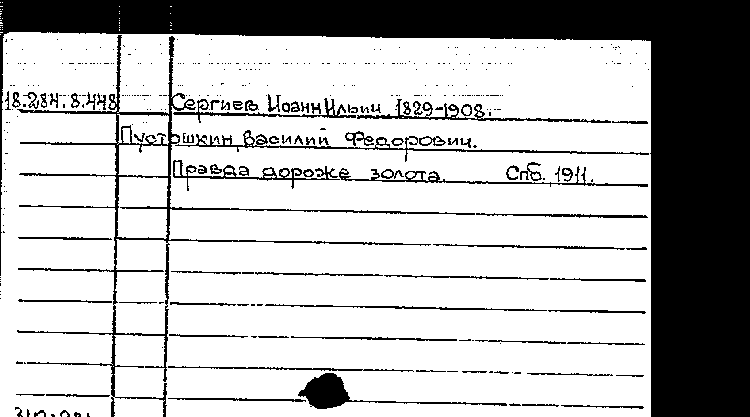 18.284.8.448 Сергиев Иоанн Ильич 1829-1908.
Пустошкин, Василий Федорович.
Правда дороже золота. Спб. 1911.